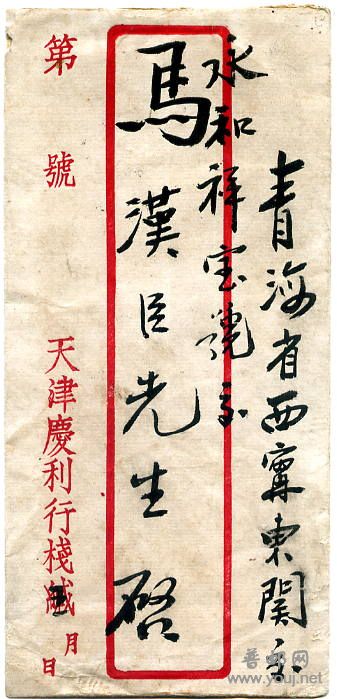 青海省西寧東關交
永和祥宝號交
馬漢臣先生啓
第 號
天津慶利行棧緘
月 日
普邮网
www.youj.net